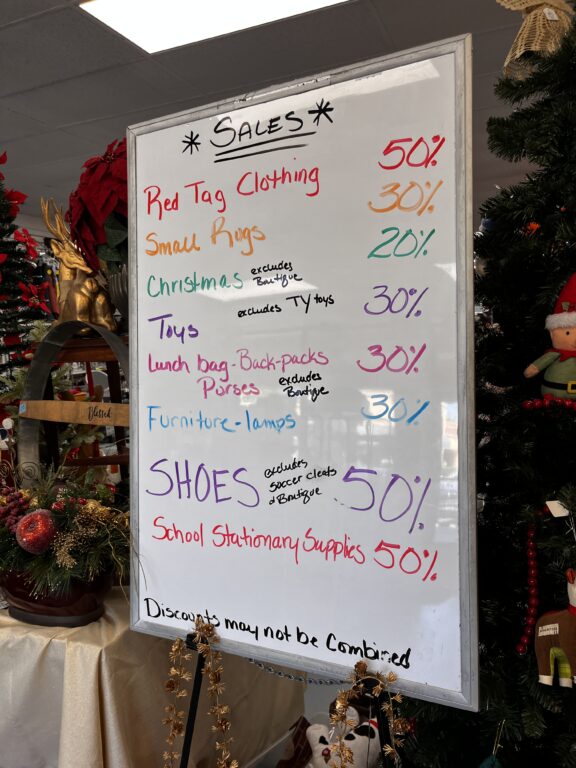 * SALES *
Red Tag Clothing 50%
Small Rugs 30%
Christmas excludes Boutique 20%
Toys excludes TY toys 30%
Lunch bag-Back-packs 30%
Purses excludes Boutique
Furniture-lamps 30%
SHOES excludes soccer cleats & Boutique 50%
School Stationary Supplies 50%
Discounts may not be Combined
Blessed